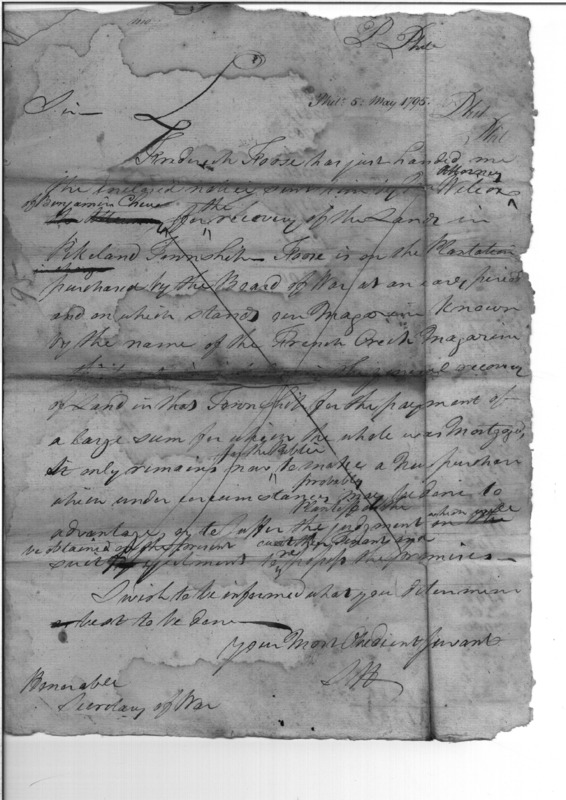 P. Phil
Philª 5. May 1795.
Phil
Phil
Sir
Frederick Foose has just handed me
the enclosed notice sent him by Attorney Wilcox
of Benjamin Chew for the recovery of the Lands in
Pikeland Township Foose is on the Plantation
purchased by the Board of War at an early period
and on which stands our Magazin known
by the name of the French Creek Magazin
general recovery
of Land in that Township for the payment of
a large sum for which the whole was Mortgaged
It only remains now for the Public to make a New purchase
which under circumstances may probably be done to
advantage or to suffer the judgment
be obtained of the present
ejectment to repossess the premises
I wish to be informed what you determine
best to be done
Your Most Obedient Servant
Honorable
Secretary of War